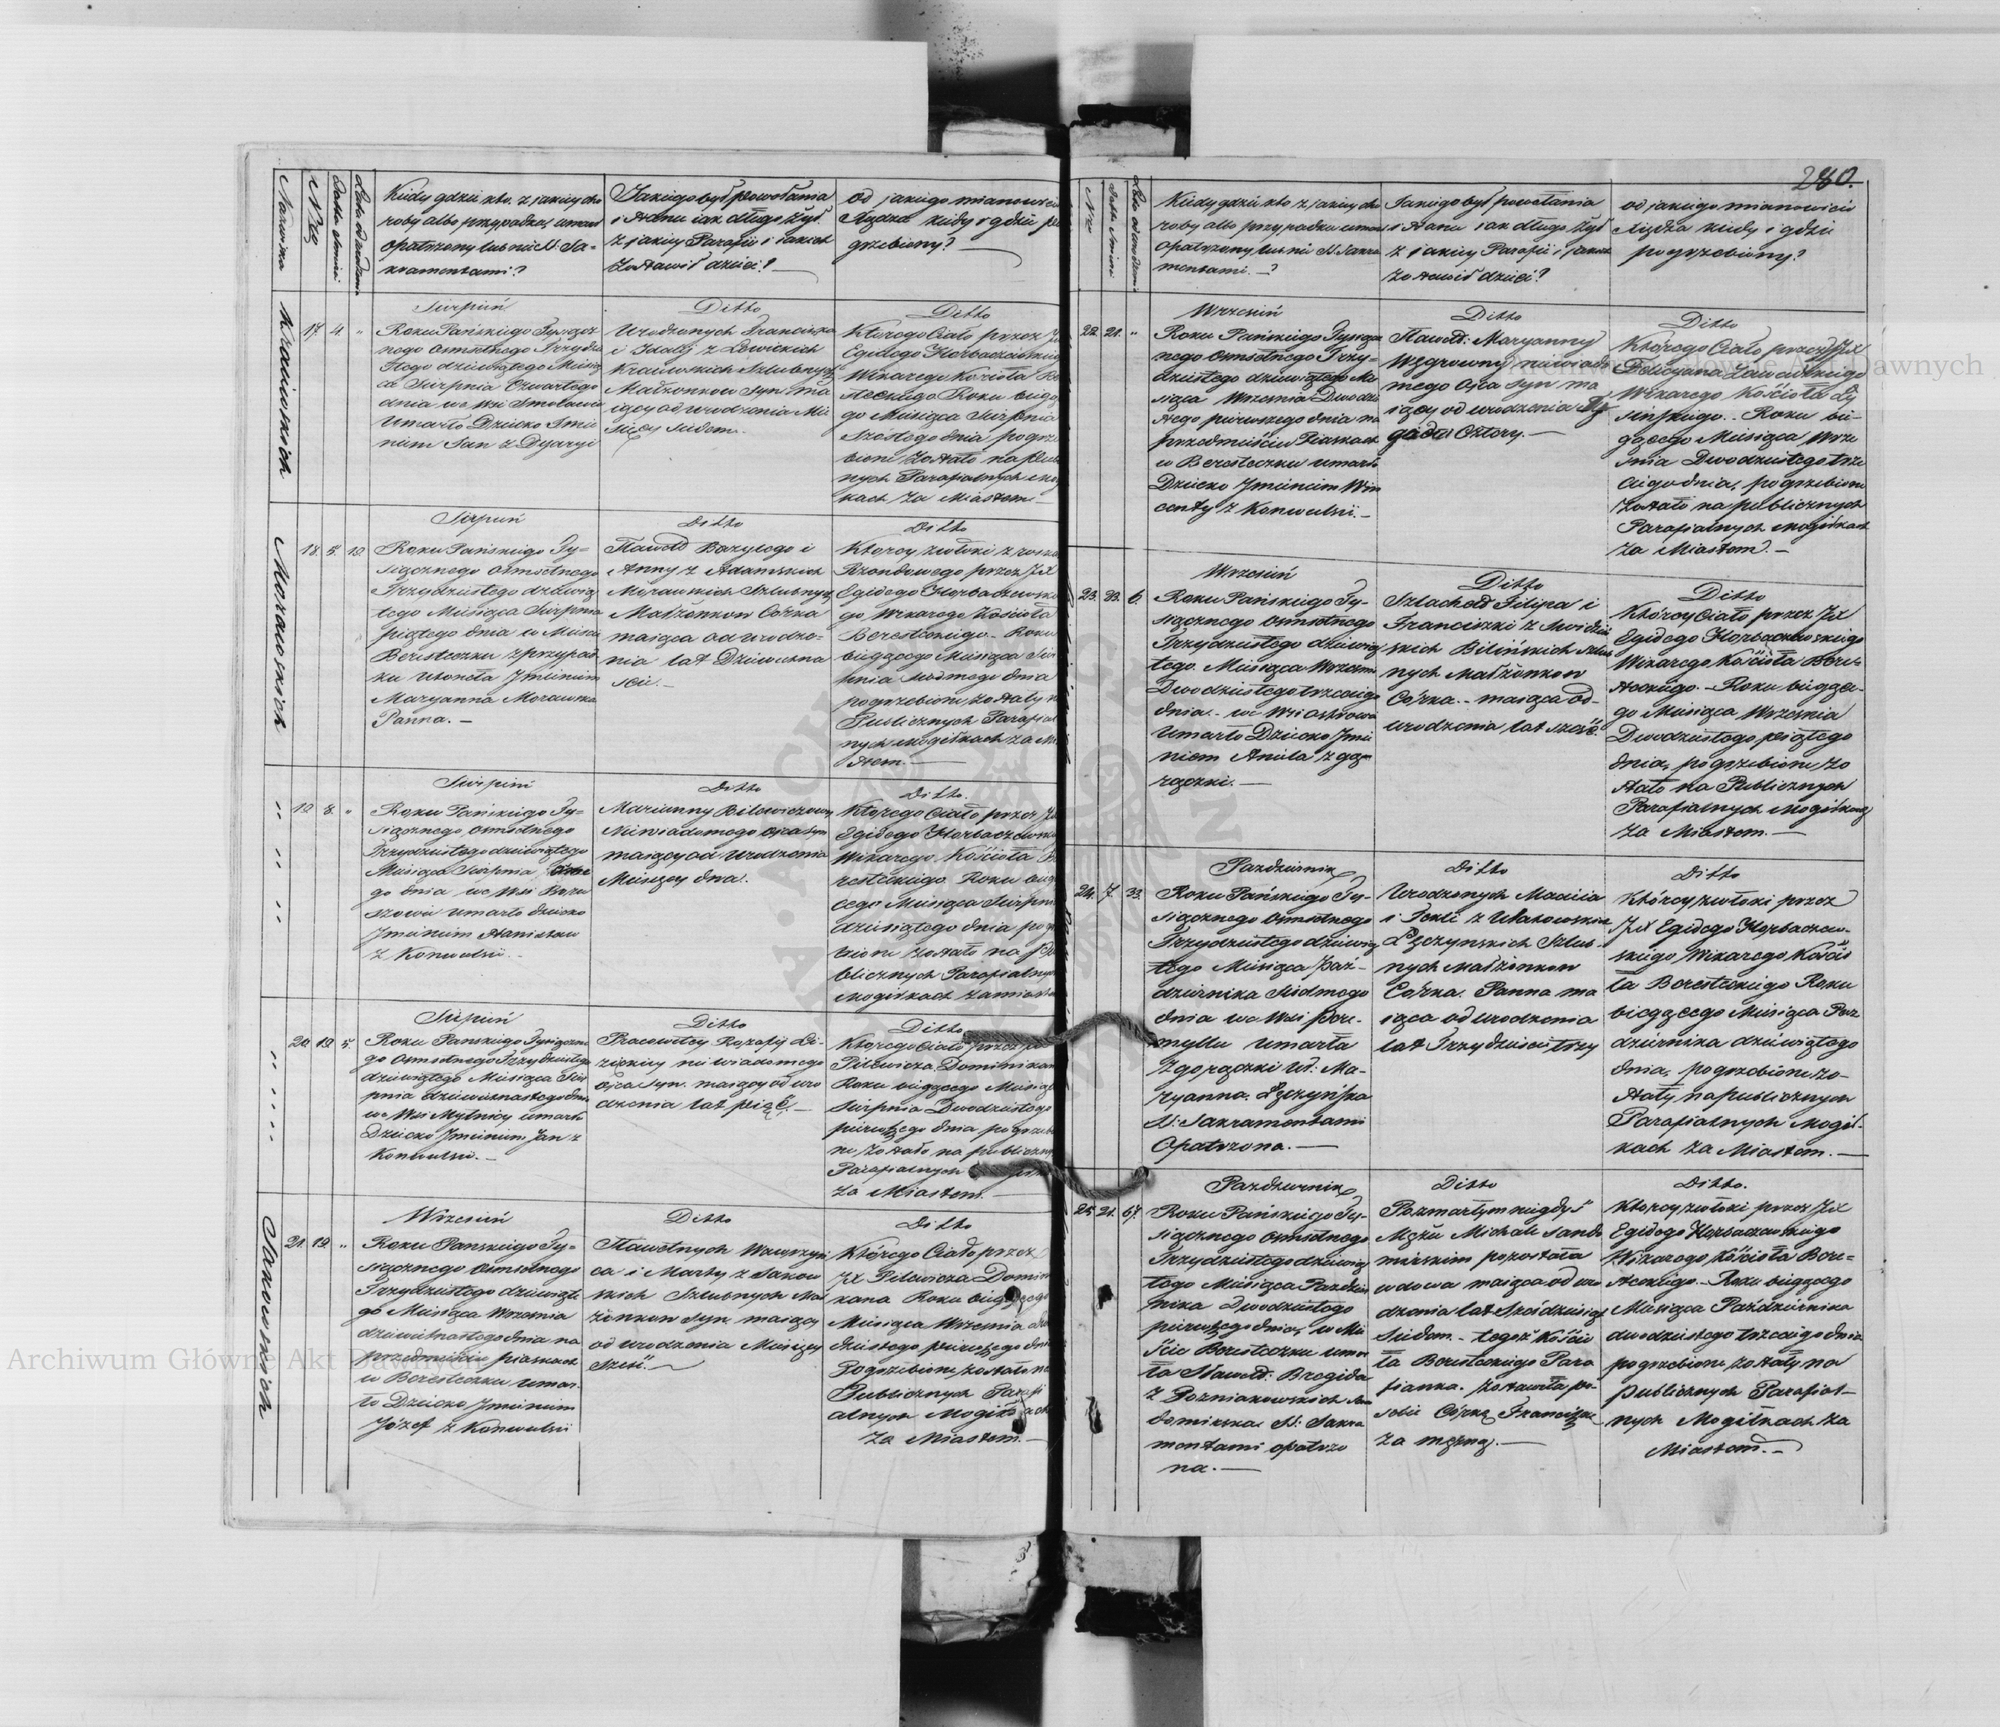 280.
Nazwiska
Nro
Data śmierci
Lata od urodzenia
Kiedy gdzie kto z jakiey cho
roby albo przypadku umarł
opatrzony lub nie S: Sa=
kramentami?
Jakiego był powołania
i stanu iak długo żył
z jakiey Parafii i iakich
zostawił dzieci?
od jakiego mianowicie
Xiędza kiedy i gdzie po
grzebiony?
Krasuwskich
17. 4 "
Sierpień
Roku Pańskiego Tysiącz
nego osmsetnego Trzydzie
stego dziewiątego Miesią
ca Sierpnia Czwartego
dnia we Wsi Smolawie
Umarło Dziecko Imie
niem Jan z Dyaryi
Ditto
Urodzonych Franciszka
i Izabeli z Lewickich
Szlubnych
Małżonkow Syn ma
iący od urodzenia Mie
sięcy siedem.
Ditto
Którego Ciało przez JX
Egidego Horbaczewskiego
Wikarego Kościoła Be
steckiego Roku bieg
go Miesiąca Sierpnia
szostego dnia pogrze
bione zostało na publi
nych Parafialnych mog
kach za Miastem
Morawskich
18. 5. 19
Sierpień
Roku Pańskiego Ty=
siącznego osmsetnego
Trzydziestego dziewią
tego Miesiąca Sierpnia
piątego dnia w Mieści
Beresteczku z przypad
ku utonęła Imieniem
Maryanna Morawska
Panna. —
Ditto
Sławetd Bazylego i
Anny z Adamskich
Morawskich Szlubnych
Małżonkow Córka
maiąca od urodze-
nia lat Dziewietna
scie. —
Ditto
Ktorey zwłoki z rozka
Rzondowego przez JX
Egidego Horbaczewskie
go, Wikarego Kościoła
Beresteckiego. Roku
bieżącego Miesiąca Sier
pnia siodmego dnia
pogrzebione zostały n
Publicznych Parafial
nych mogiłkach za Mia
stem. —
19. 8. "
Sierpień
Roku Pańskiego Ty=
siącznego osmsetnego
Trzydziestego dziewiątego
Miesiąca Sierpnia
go dnia we Wsi
umarło dziecko
Imieniem Stanisław
z Konwulsii. —
Ditto
Marianny Bilewiczowey
Niewiadomego Oyca Syn
maiący od urodzenia
Miesięcy dwa.
Ditto.
Którego Ciało przez JX
Egidego Horbaczewski
Wikarego Kościoła Be
resteckiego Roku bieg
cego Miesiąca Sierpni
dziesiątego dnia, pogr
bione zostało na Pu
blicznych Parafialnych
mogiłkach za miastem
20. 19. 5.
Sierpień
Roku Pańskiego Tysiączne
go osmsetnego Trzydziestego
dziewiątego Miesiąca Sier
pnia dziewietnastego dnia
we Wsi Mytnicy umarło
Dziecko Imieniem Jan z
Konwulsii. —
Ditto
niewiadomego
Oyca Syn. maiący od uro
dzenia lat pięć. —
Ditto
Którego Ciało przez JX
Pilewicza Dominikan
Roku bieżącego Miesią
Sierpnia Dwódziestego
pierwszego dnia pogrzebi
ne zostało na publiczny
Parafialnych
za Miastem. —
Sanowskich
21. 19. "
Wrzesień
Roku Pańskiego Ty=
siącznego Osmsetnego
Trzydziestego dziewiąte
go Miesiąca Września
dziewietnastego dnia na
przedmieściu piaskach
w Beresteczku umar
ło Dziecko Imieniem
Józef z Konwulsii
Ditto
Sławetnych Wawrzyń
ca i Marty z
Szlubnych Mał
żonkow Syn. maiący
od urodzenia Miesięcy
sześć. —
Ditto
Którego Ciało przez
JX Pilewicza Domini
kana Roku bieżącego
Miesiąca Września dwó
dziestego pierwszego dnia
Pogrzebione zostało na
Publicznych Parafi
alnych Mogiłkach
za Miastem. —
Nro
Data śmierci
Lata od urodzenia
Kiedy gdzie kto z jakiey cho
roby albo przypadku umarł
opatrzony lub nie S: Sakra
mentami. —?
Jakiego był powołania
i stanu iak długo żył
z jakiey Parafii i jakich
zostawił dzieci?
od jakiego mianowicie
Xiędza kiedy i gdzie
pogrzebiony?
22. 21. "
Wrzesień
Roku Pańskiego Tysiącz
nego osmsetnego Trzy=
dziestego dziewiątego Mie
siąca Września Dwudzie
stego pierwszego dnia na
przedmieściu Piaskach
w Beresteczku umarło
Dziecko Imieniem Win
centy z Konwulsii. —
Ditto
Sławetd: Maryanny
Węgrowny niewiado
mego Oyca Syn ma
iący od urodzenia Ty
godni Cztery. —
Ditto
Którego Ciało przez JX
Felicyana Zawadzkiego
Wikarego Kościoła Ły
sińskiego. Roku bie-
żącego Miesiąca Wrze
śnia Dwódziestego trze
ciego dnia, pogrzebione
zostało na publicznych
Parafialnych mogiłkach
za Miastem. —
23. 23. 6.
Wrzesień
Roku Pańskiego Ty-
siącznego Osmsetnego
Trzydziestego dziewią
tego. Miesiąca Września
Dwódziestego trzeciego
dnia. we Wsi Ostrowie
Umarło Dziecko Imie
niem Aniela z go
rączki. —
Ditto
Szlachetd Filipa i
Franciszki z
Bilińskich Szlub
nych Małżonkow
Córka. maiąca od
urodzenia lat sześć.
Ditto
Którey Ciało przez JX
Egidego Horbaczewskiego
Wikarego Kościoła Bere-
steckiego. Roku bieżące-
go Miesiąca Września
Dwódziestego piątego
dnia, pogrzebione zo
stało na Publicznych
Parafialnych Mogiłkach
za Miastem. —
24. 7. 33.
Październik
Roku Pańskiego Ty-
siącznego Osmsetnego
Trzydziestego dziewią
tego Miesiąca Paź-
dziernika Siodmego
dnia we Wsi Pere-
myllu umarła
z gorączki Ur: Ma-
ryanna Łęczyńska
SS: Sakramentami
Opatrzona. —
Ditto
Urodzonych Macieia
i Tekli z
Łęczynskich Szlub
nych Małżonkow
Córka. Panna ma
iąca od urodzenia
lat Trzydzieści trzy
Ditto
Którey zwłoki przez
JX Egidego Horbaczew-
skiego Wikarego Kościo
ła Beresteckiego Roku
bieżącego Miesiąca Paz
dziernika dziewiątego
dnia, pogrzebione zo-
stały na publicznych
Parafialnych Mogił-
kach za Miastem. —
25. 21. 67.
Październik
Roku Pańskiego Ty-
siącznego Osmsetnego
Trzydziestego dziewią
tego Miesiąca Paździer
nika Dwódziestego
pierwszego dnia, w Mie
ście Beresteczku umar
ła Sławetd: Brygida
z Pozniakowskich San
domirska SS: Sakra
mentami opatrzo
na. —
Ditto
Po zmarłym niegdyś
Mężu Michale Sando
mirskim pozostała
wdowa maiąca od uro
dzenia lat Sześdziesiąt
Siedem. — tegoż Kościo
ła Beresteckiego Para
fianka. zostawiła po
sobie Córkę Franciszkę
za mężną. —
Ditto.
Którey zwłoki przez JX
Egidego Horbaczewskiego
Wikarego Kościoła Bere=
steckiego. — Roku bieżącego
Miesiąca Października
dwudziestego trzeciego dnia
pogrzebione zostały na
publicznych Parafial-
nych Mogiłkach za
Miastem. —
Archiwum Główne Akt Dawnych